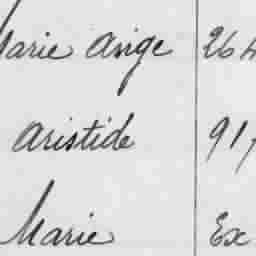 Marie Ange 264
Aristide 917
Marie Ex